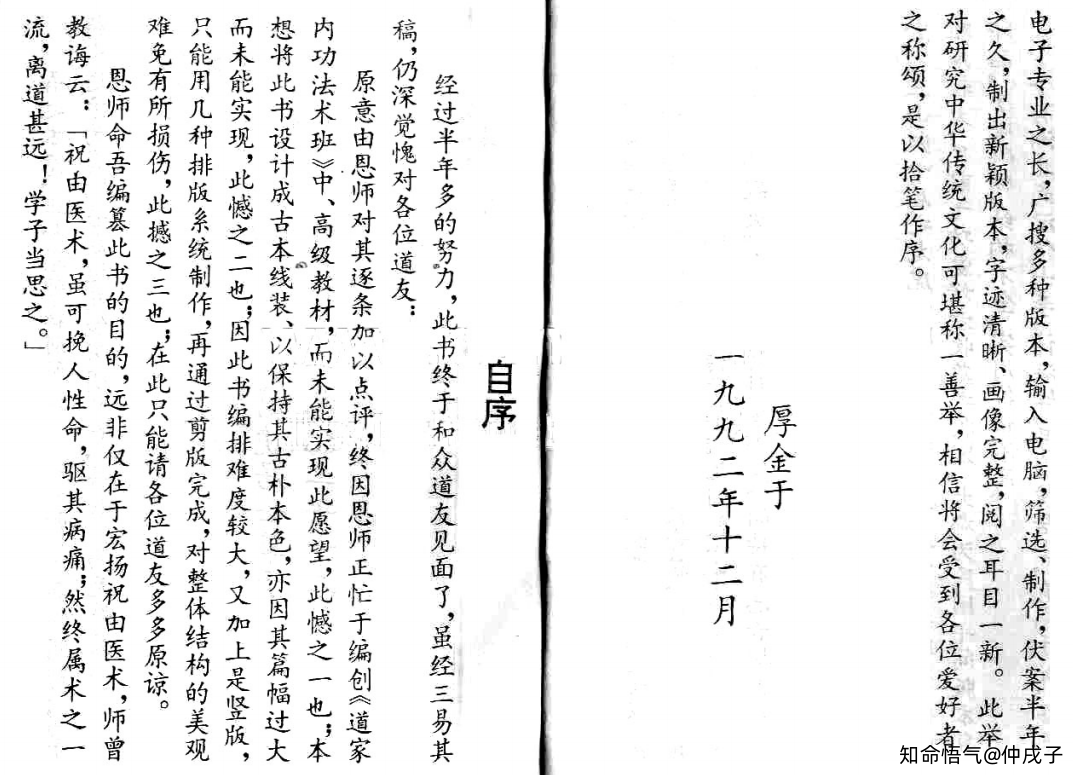 电子专业之长，广搜多种版本，输入电脑，筛选、制作，伏案半年
之久，制出新颖版本，字迹清晰、画像完整，阅之耳目一新。此举
对研究中华传统文化可堪称一善举，相信将会受到各位爱好者
之称颂，是以拾笔作序。
厚金于
一九九二年十二月
自序
经过半年多的努力，此书终于和众道友见面了，虽经三易其
稿，仍深觉愧对各位道友：
原意由恩师对其逐条加以点评，终因恩师正忙于编创《道家
内功法术班》中、高级教材，而未能实现此愿望，此憾之一也；本
想将此书设计成古本线装、以保持其古朴本色，亦因其篇幅过大
而未能实现，此憾之二也；因此书编排难度较大，又加上是竖版，
只能用几种排版系统制作，再通过剪版完成，对整体结构的美观
难免有所损伤，此撼之三也；在此只能请各位道友多多原谅。
恩师命吾编篡此书的目的，远非仅在于宏扬祝由医术，师曾
教诲云：「祝由医术，虽可挽人性命，驱其病痛；然终属术之一
流，离道甚远！学子当思之。」
知命悟气@仲戌子